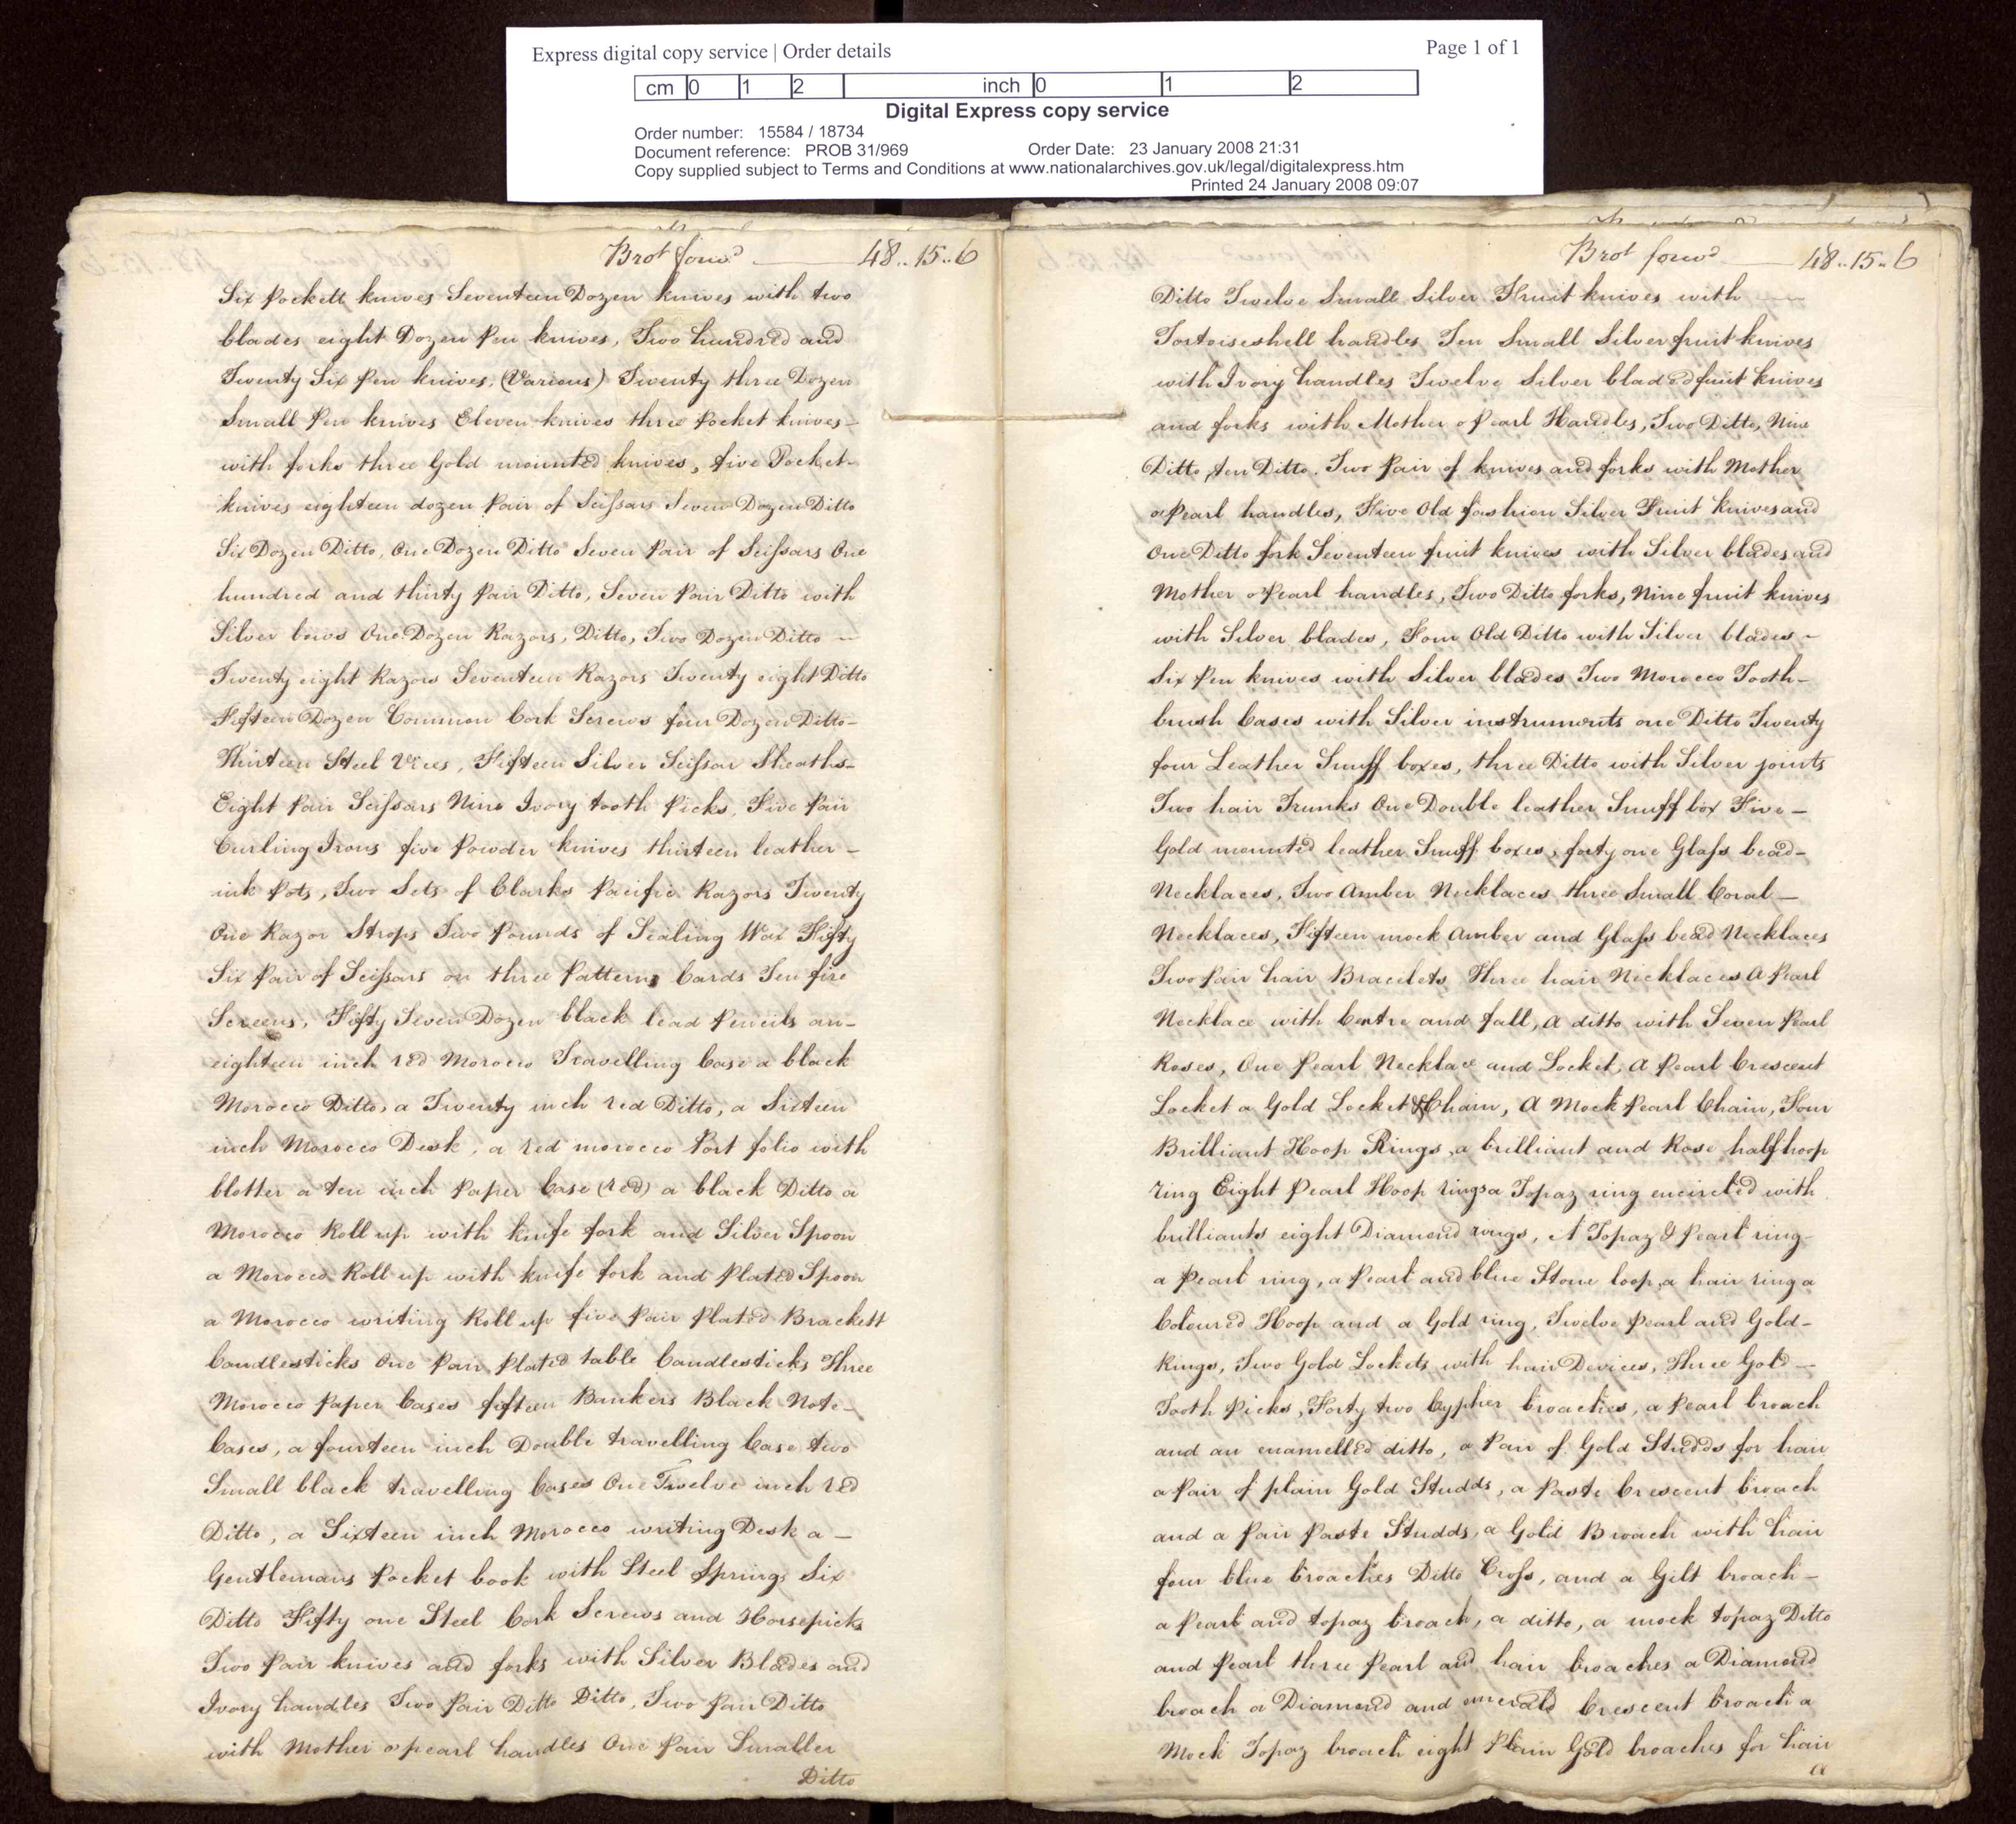 Express digital copy service | Order details
Page 1 of 1
cm 0 1 2 inch 0 1 2
Digital Express copy service
Order number: 15584 / 18734
Document reference: PROB 31/969 Order Date: 23 January 2008 21:31
Copy supplied subject to Terms and Conditions at www.nationalarchives.gov.uk/legal/digitalexpress.htm
Printed 24 January 2008 09:07
Brot forwd 48..15..6
Six Pockett knives Seventeen Dozen knives with two
blades eight Dozen Pen knives, Two hundred and
Twenty Six Pen knives, (Various) Twenty three Dozen
Small Pen knives Eleven knives three Pocket knives -
with forks three Gold mounted knives, five Pocket -
knives eighteen dozen Pair of Scissars Seven Dozen Ditto
Six Dozen Ditto, One Dozen Ditto Seven Pair of Scissars One
hundred and thirty Pair Ditto, Seven Pair Ditto with
Silver bows One Dozen Razors, Ditto, Two Dozen Ditto -
Twenty eight Razors Seventeen Razors Twenty eight Ditto
Fifteen Dozen Common Cork Screws four Dozen Ditto -
Thirteen Steel Vices, Fifteen Silver Scissar Sheaths -
Eight Pair Scissars Nine Ivory tooth Picks, Five Pair
Curling Irons five Powder knives thirteen leather -
ink Pots, Two Sets of Clarks Pacific Razors Twenty
One Razor Strops Two Pounds of Sealing Wax Fifty
Six Pair of Scissars on three Pattern Cards Ten fire
Screens, Fifty Seven Dozen black lead Pencils an -
eighteen inch red Morocco Travelling Case a black
Morocco Ditto, a Twenty inch red Ditto, a Sixteen
inch Morocco Desk, a red morocco Port folio with
blotter a ten inch Paper Case (red) a black Ditto a
Morocco Roll up with knife fork and Silver Spoon
a Morocco Roll up with knife fork and Plated Spoon
a Morocco writing Roll up five Pair Plated Brackett
Candlesticks One Pair plated table Candlesticks Three
Morocco Paper Cases fifteen Bankers Black Note -
Cases, a fourteen inch Double travelling Case two
Small black travelling Cases One Twelve inch red
Ditto, a Sixteen inch Morocco writing Desk a -
Gentlemans Pocket book with Steel Spring, Six
Ditto Fifty one Steel Cork Screws and Horsepicks
Two Pair knives and forks with Silver Blades and
Ivory handles Two Pair Ditto Ditto, Two Pair Ditto
with Mother o pearl handles One Pair Smaller
Ditto
Brot forwd 48..15..6
Ditto Twelve Small Silver Fruit knives with
Tortoiseshell handles Ten Small Silver fruit knives
with Ivory handles Twelve Silver bladed fruit knives
and forks with Mother o Pearl Handles, Two Ditto, Nine
Ditto, ten Ditto. Two Pair of knives and forks with Mother
o Pearl handles, Five Old fashion Silver Fruit knives and
One Ditto fork Seventeen fruit knives with Silver blades and
Mother o Pearl handles, Two Ditto forks, Nine fruit knives
with Silver blades, Four Old Ditto with Silver blades -
Six Pen knives with Silver blades Two Morocco Tooth -
brush Cases with Silver instruments one Ditto Twenty
four Leather Snuff boxes, three Ditto with Silver joints
Two hair Trunks One Double leather Snuff box Five -
Gold mounted leather Snuff boxes, forty one Glass bead -
Necklaces, Two Amber Necklaces three Small Coral -
Necklaces, Fifteen mock Amber and Glass bead Necklaces
Two Pair hair Bracelets Three hair Necklaces A Pearl
Necklace with Centre and fall, a ditto with Seven Pearl
Roses, One Pearl Necklace and Locket, A Pearl Crescent
Locket a Gold Locket & Chain, A Mock Pearl Chain, Four
Brilliant Hoop Rings, a brilliant and Rose half hoop
ring Eight Pearl Hoop rings a Topaz ring encircled with
brilliants eight Diamond rings, A Topaz & Pearl ring
a Pearl ring, a Pearl and blue Stone loop, a hair ring a
Coloured Hoop and a Gold ring, Twelve Pearl and Gold -
Rings, Two Gold Lockets with hair Devices, Three Gold -
Tooth Picks, Forty two Cypher broaches, a Pearl broach
and an enamelled ditto, a Pair of Gold Studds for hair
a Pair of plain Gold Studds, a Paste Crescent broach
and a Pair Paste Studds, a Gold Broach with hair
four blue broaches Ditto Cross, and a Gilt broach -
a Pearl and topaz broach, a ditto, a mock topaz Ditto
and Pearl three Pearl and hair broaches a Diamond
broach a Diamond and emerald Crescent broach a
Mock Topaz broach eight Plain Gold broaches for hair
a